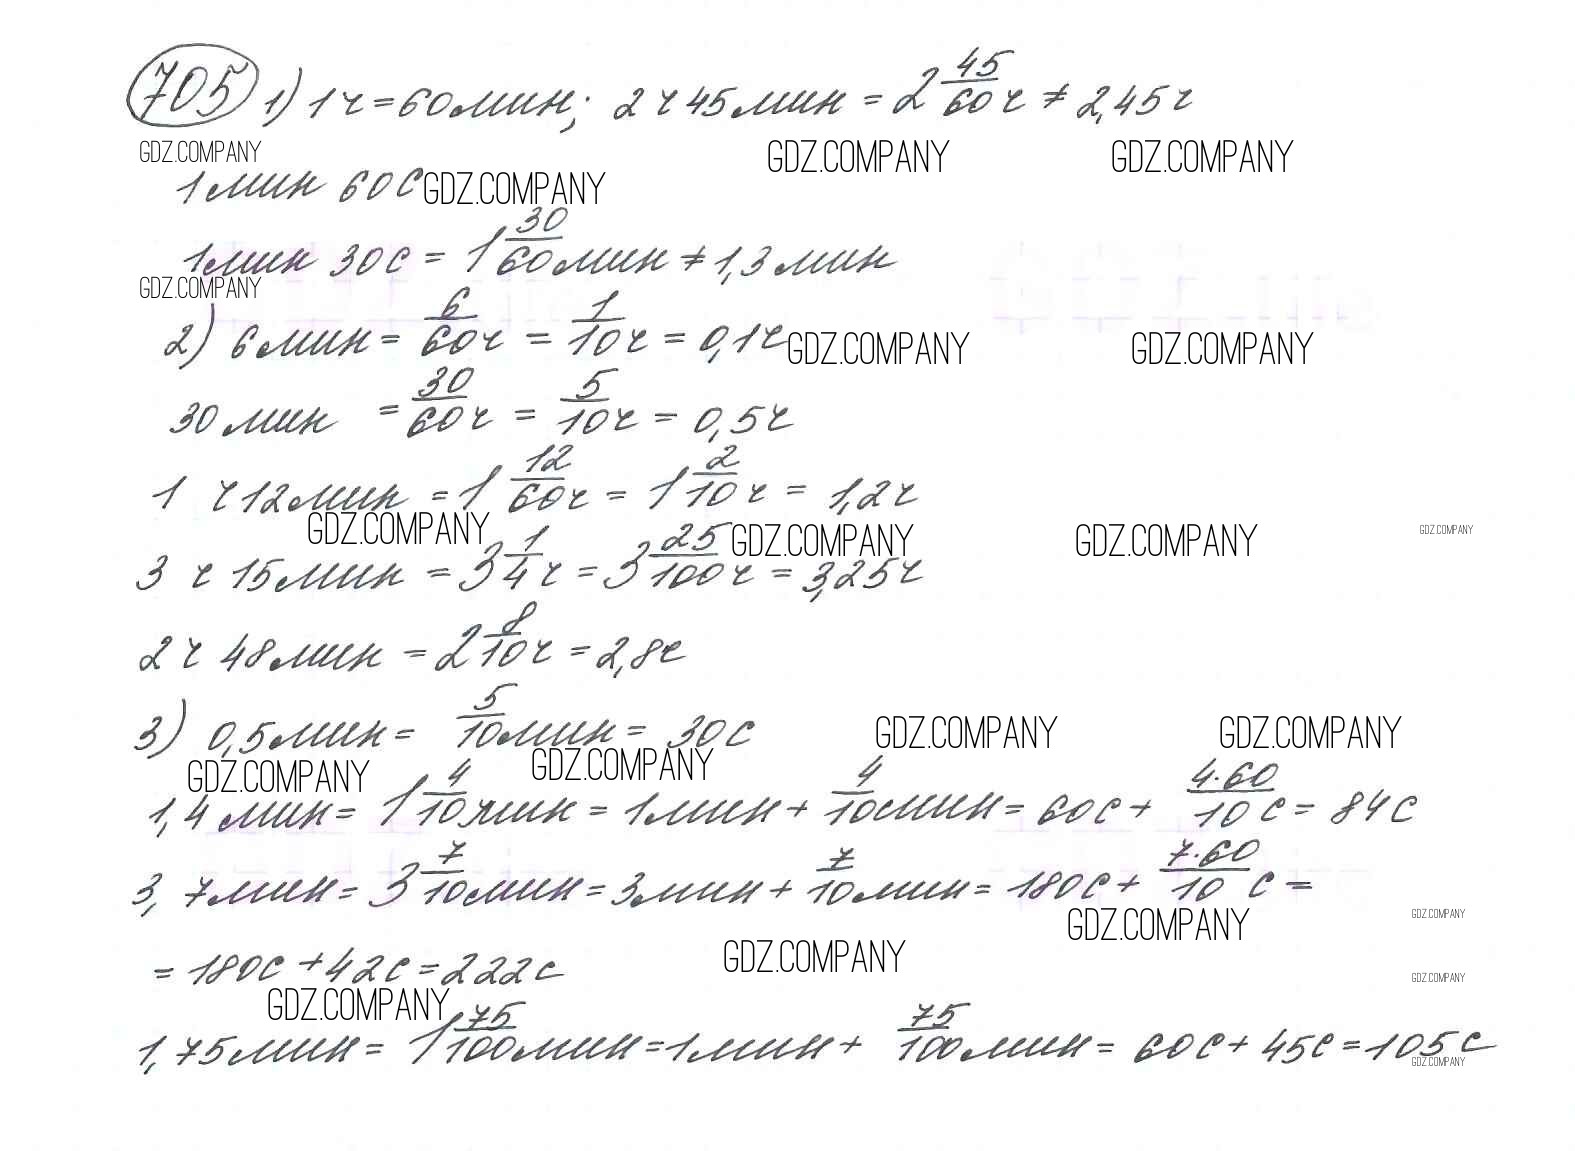 705 1) 1ч=60мин; 2ч45мин = 2 45/60ч ≠ 2,45ч
GDZ.COMPANY GDZ.COMPANY GDZ.COMPANY
1мин 60с GDZ.COMPANY
1мин 30с = 1 30/60мин ≠ 1,3мин
GDZ.COMPANY
2) 6мин = 6/60ч = 1/10ч = 0,1ч GDZ.COMPANY GDZ.COMPANY
30мин = 30/60ч = 5/10ч = 0,5ч
1 ч12мин = 1 12/60ч = 1 2/10ч = 1,2ч
GDZ.COMPANY GDZ.COMPANY GDZ.COMPANY GDZ.COMPANY
3 ч 15мин = 3 1/4ч = 3 25/100ч = 3,25ч
2ч 48мин = 2 8/10ч = 2,8ч
3) 0,5мин = 5/10мин = 30с GDZ.COMPANY GDZ.COMPANY
GDZ.COMPANY GDZ.COMPANY
1,4мин = 1 4/10мин = 1мин + 4/10мин = 60с + 4·60/10 с = 84с
3,7мин = 3 7/10мин = 3мин + 7/10мин = 180с + 7·60/10 с =
GDZ.COMPANY GDZ.COMPANY
= 180с + 42с = 222с GDZ.COMPANY GDZ.COMPANY
GDZ.COMPANY
1,75мин = 1 75/100мин = 1мин + 75/100мин = 60с + 45с = 105с
GDZ.COMPANY